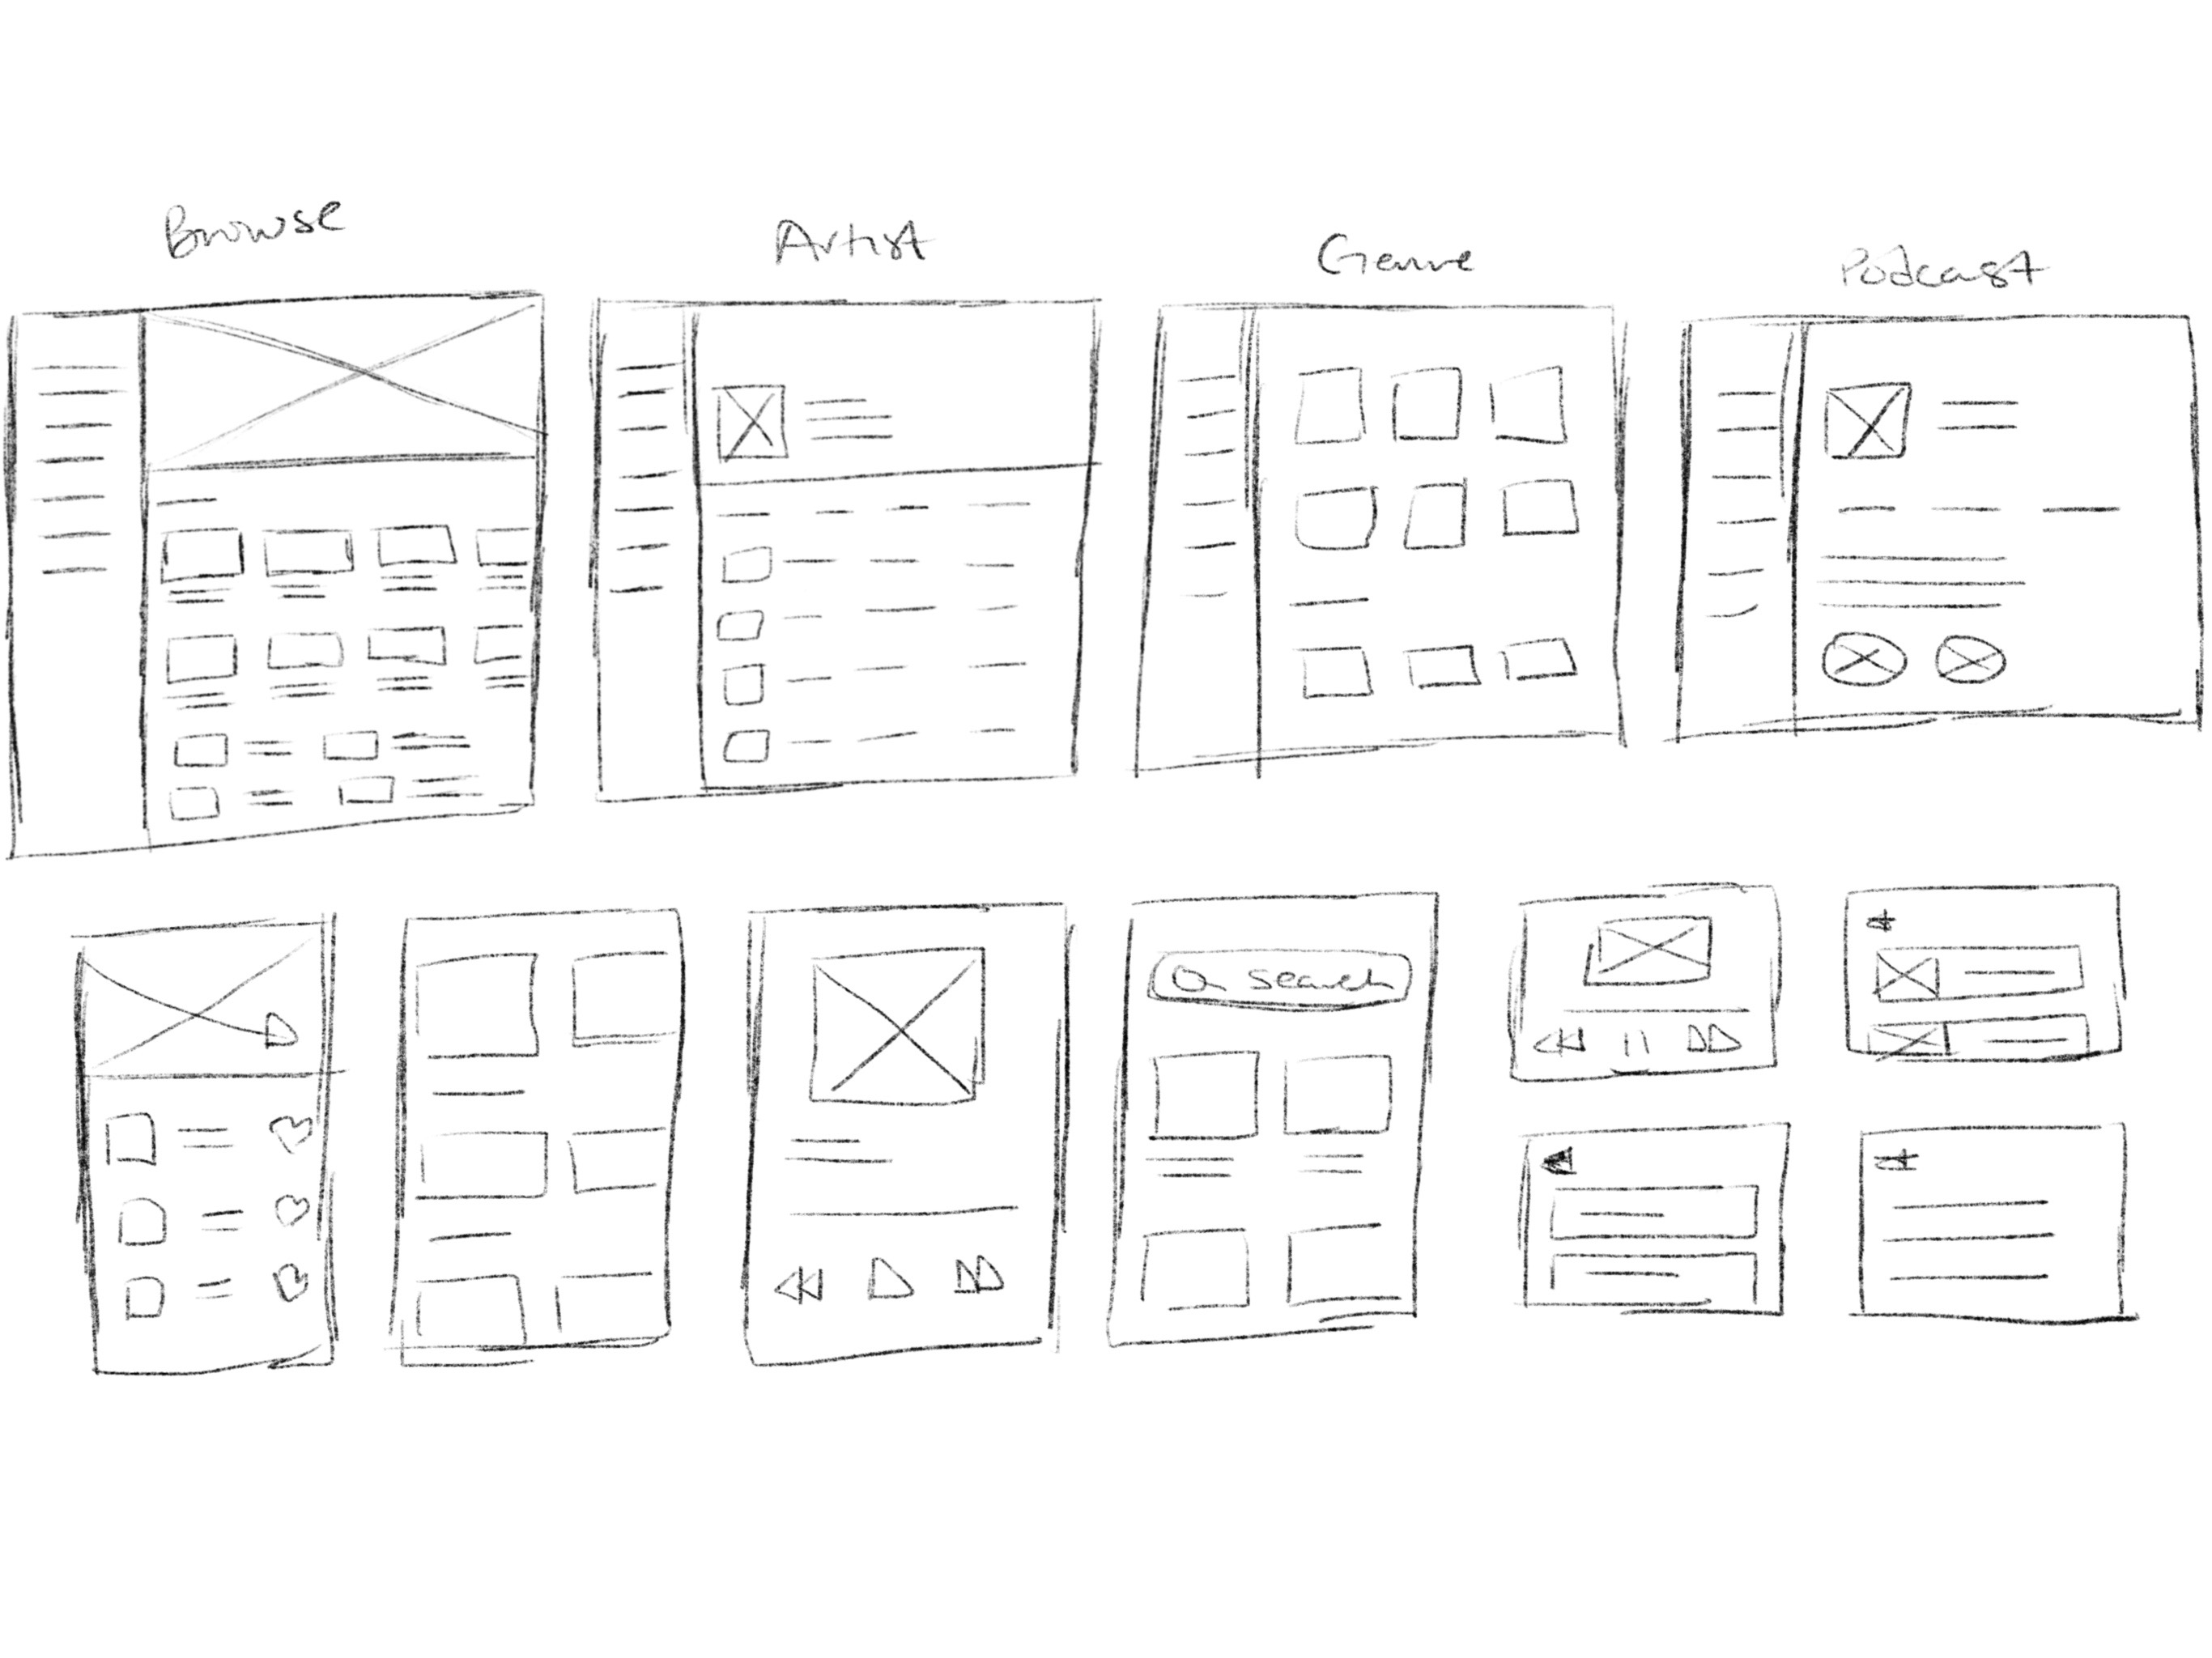 Browse
Artist
Genre
Podcast
search